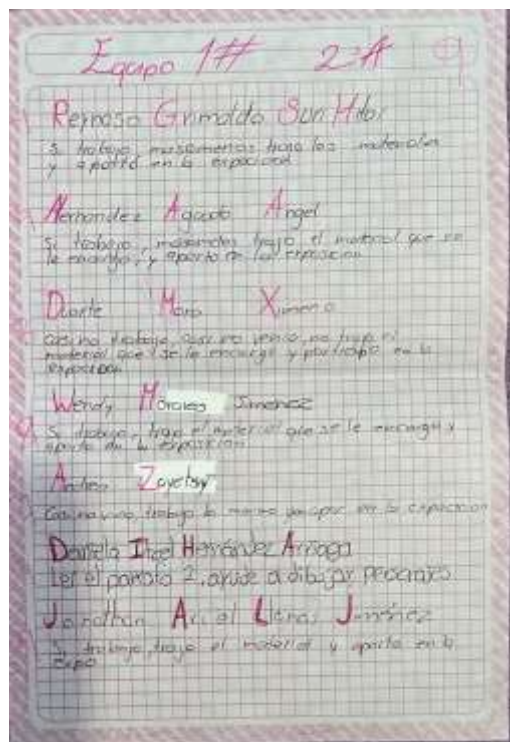 Equipo 1# 2°A
Reynoso Grimaldo Sun Hibi
Si trabajo masomenos trajo los materiales
y aporto en la exposicion
Hernandez Aguado Angel
Si trabajo, masomenos trajo el material que se
le encargo, y aporto en la exposicion
Duarte Mora Ximena
Casi no trabajo, casi no venia, no trajo el
material que se le encargo y participo en la
exposicion
Wendy Morales Jimenez
Si trabajo, trajo el material que se le encargo y
aporto en la exposicion
Andrea Zoyetsy
Casi no vino, trabajo lo en la exposicion
Daniela Itzel Hernández Arriaga
Leer el 2, ayude a dibujar
Jonathan Ariel Llanas Jiménez
Si trabajo, trajo el material y aporto en la
expo